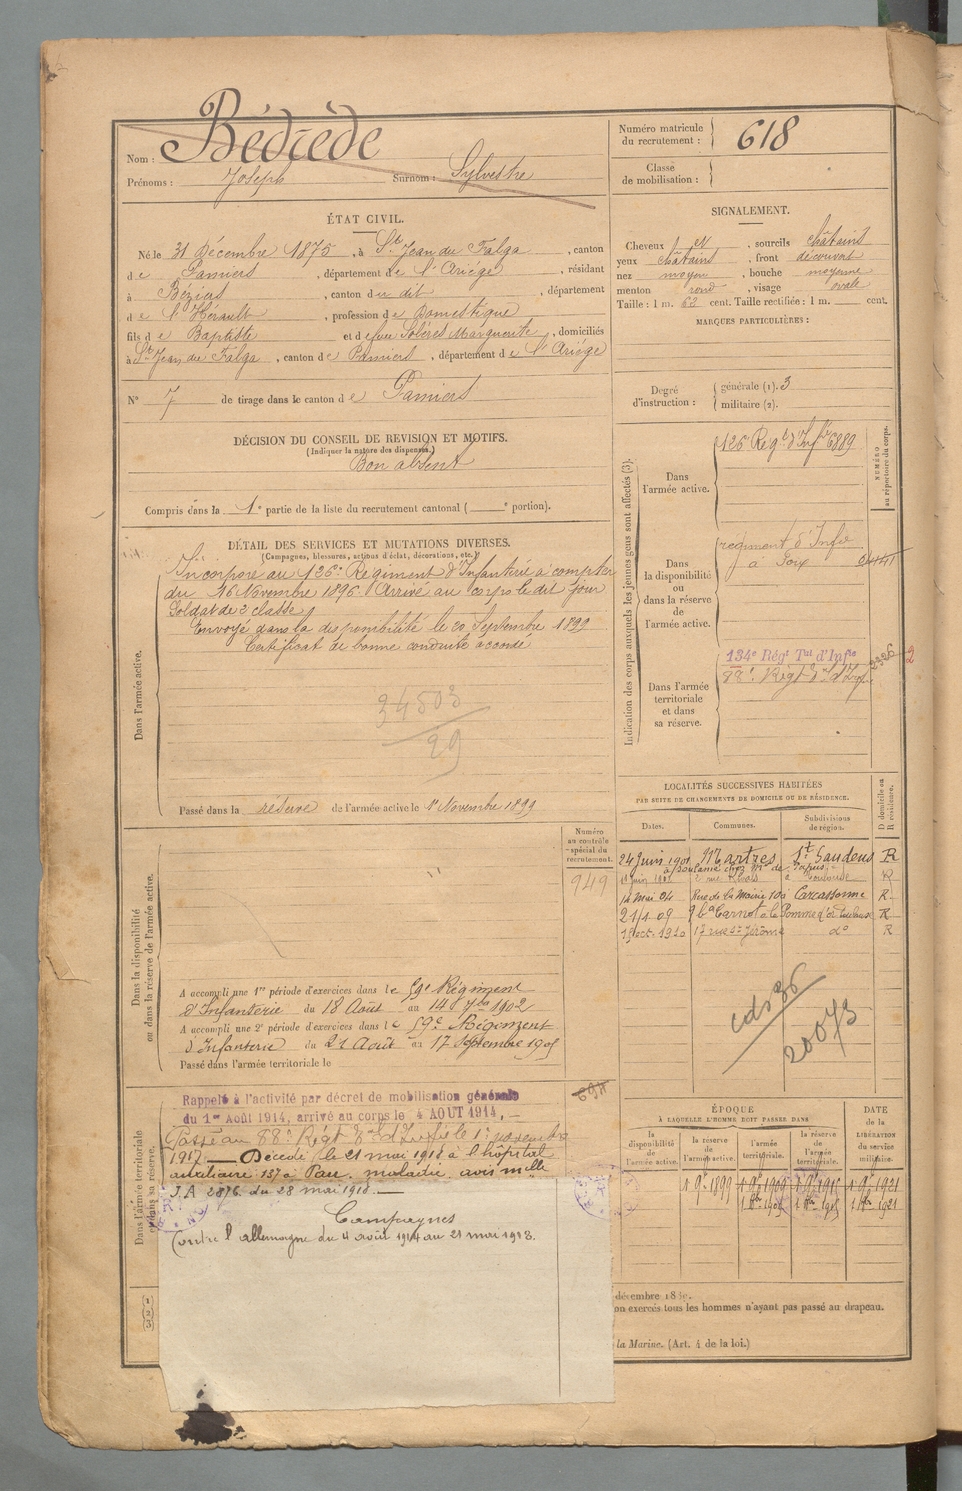 Nom : Bédrède
Prénoms : Joseph Surnom : Sylvestre
Numéro matricule du recrutement : 618
Classe de mobilisation :
ÉTAT CIVIL.
Né le 31 Décembre 1875, à St Jean du Falga, canton
de Pamiers, département de l'Ariége, résidant
à Béziers, canton du dit, département
de l'Hérault, profession de Domestique
fils de Baptiste et de feue Solères Marguerite, domiciliés
à St Jean du Falga, canton de Pamiers, département de l'Ariége
N° 7 de tirage dans le canton de Pamiers
SIGNALEMENT.
Cheveux et, sourcils châtains
yeux châtains, front découvert
nez moyen, bouche moyenne
menton rond, visage ovale
Taille : 1 m. 62 cent. Taille rectifiée : 1 m. cent.
MARQUES PARTICULIÈRES :
Degré d'instruction : générale (1). 3
militaire (2).
DÉCISION DU CONSEIL DE REVISION ET MOTIFS.
(Indiquer la nature des dispenses.)
Bon absent
Compris dans la 1e partie de la liste du recrutement cantonal ( e portion).
DÉTAIL DES SERVICES ET MUTATIONS DIVERSES.
(Campagnes, blessures, actions d'éclat, décorations, etc.)
Dans l'armée active.
Incorporé au 126e Régiment d'Infanterie à compter
du 16 Novembre 1896. Arrivé au corps le dit jour
Soldat de 2 classe
Envoyé dans la disponibilité le 20 Septembre 1899
Certificat de bonne conduite accordé
34503
29
Passé dans la réserve de l'armée active le 1er Novembre 1899
Indication des corps auxquels les jeunes gens sont affectés (3).
NUMÉRO au répertoire du corps.
Dans l'armée active.
126 Regt d'Infie 6889
Dans la disponibilité ou dans la réserve de l'armée active.
regiment d'Infie
à Foix
Dans l'armée territoriale et dans sa réserve.
134e Régt Tal d'Infie
88e Régt Tal d'Inf. 2326
2
LOCALITÉS SUCCESSIVES HABITÉES
PAR SUITE DE CHANGEMENTS DE DOMICILE OU DE RÉSIDENCE.
Dates. Communes. Subdivisions de région. D domicile ou R résidence.
24 juin 1901 Martres St Gaudens R
à Toulouse R
14 Mai 04 Rue de la Mairie 10 Carcassonne R
21/1 09 9 bd Carnot à la Pomme d'or Toulouse R
19 oct. 1910 17 rue St Jérôme do R
20073
Dans la disponibilité ou dans la réserve de l'armée active.
Numéro au contrôle spécial du recrutement.
949
A accompli une 1re période d'exercices dans le 59e Régiment
d'Infanterie du 18 Août au 14 7bre 1902
A accompli une 2e période d'exercices dans le 59e Régiment
d'Infanterie du 21 Août au 17 Septembre 1905
Passé dans l'armée territoriale le
Dans l'armée territoriale et dans sa réserve.
Rappelé à l'activité par décret de mobilisation générale
du 1er Août 1914, arrivé au corps le 4 AOUT 1914. —
Passé au 88e Régt Tal d'Infie le 1er novembre
1917 — Décédé le 21 mai 1918 à l'hôpital
auxiliaire 137 à Pau. maladie. avis mlle
J.A 2876 du 28 mai 1918. —
Campagnes
Contre l'allemagne du 4 août 1914 au 21 mai 1918.
ÉPOQUE
À LAQUELLE L'HOMME DOIT PASSER DANS
la disponibilité de l'armée active.
la réserve de l'armée active.
l'armée territoriale.
la réserve de l'armée territoriale.
DATE de la LIBÉRATION du service militaire.
1 9e 1899 1 9e 1909 1 9e 1915 1 9e 1921
décembre 18
on exercés tous les hommes n'ayant pas passé au drapeau.
la Marine. (Art. 4 de la loi.)